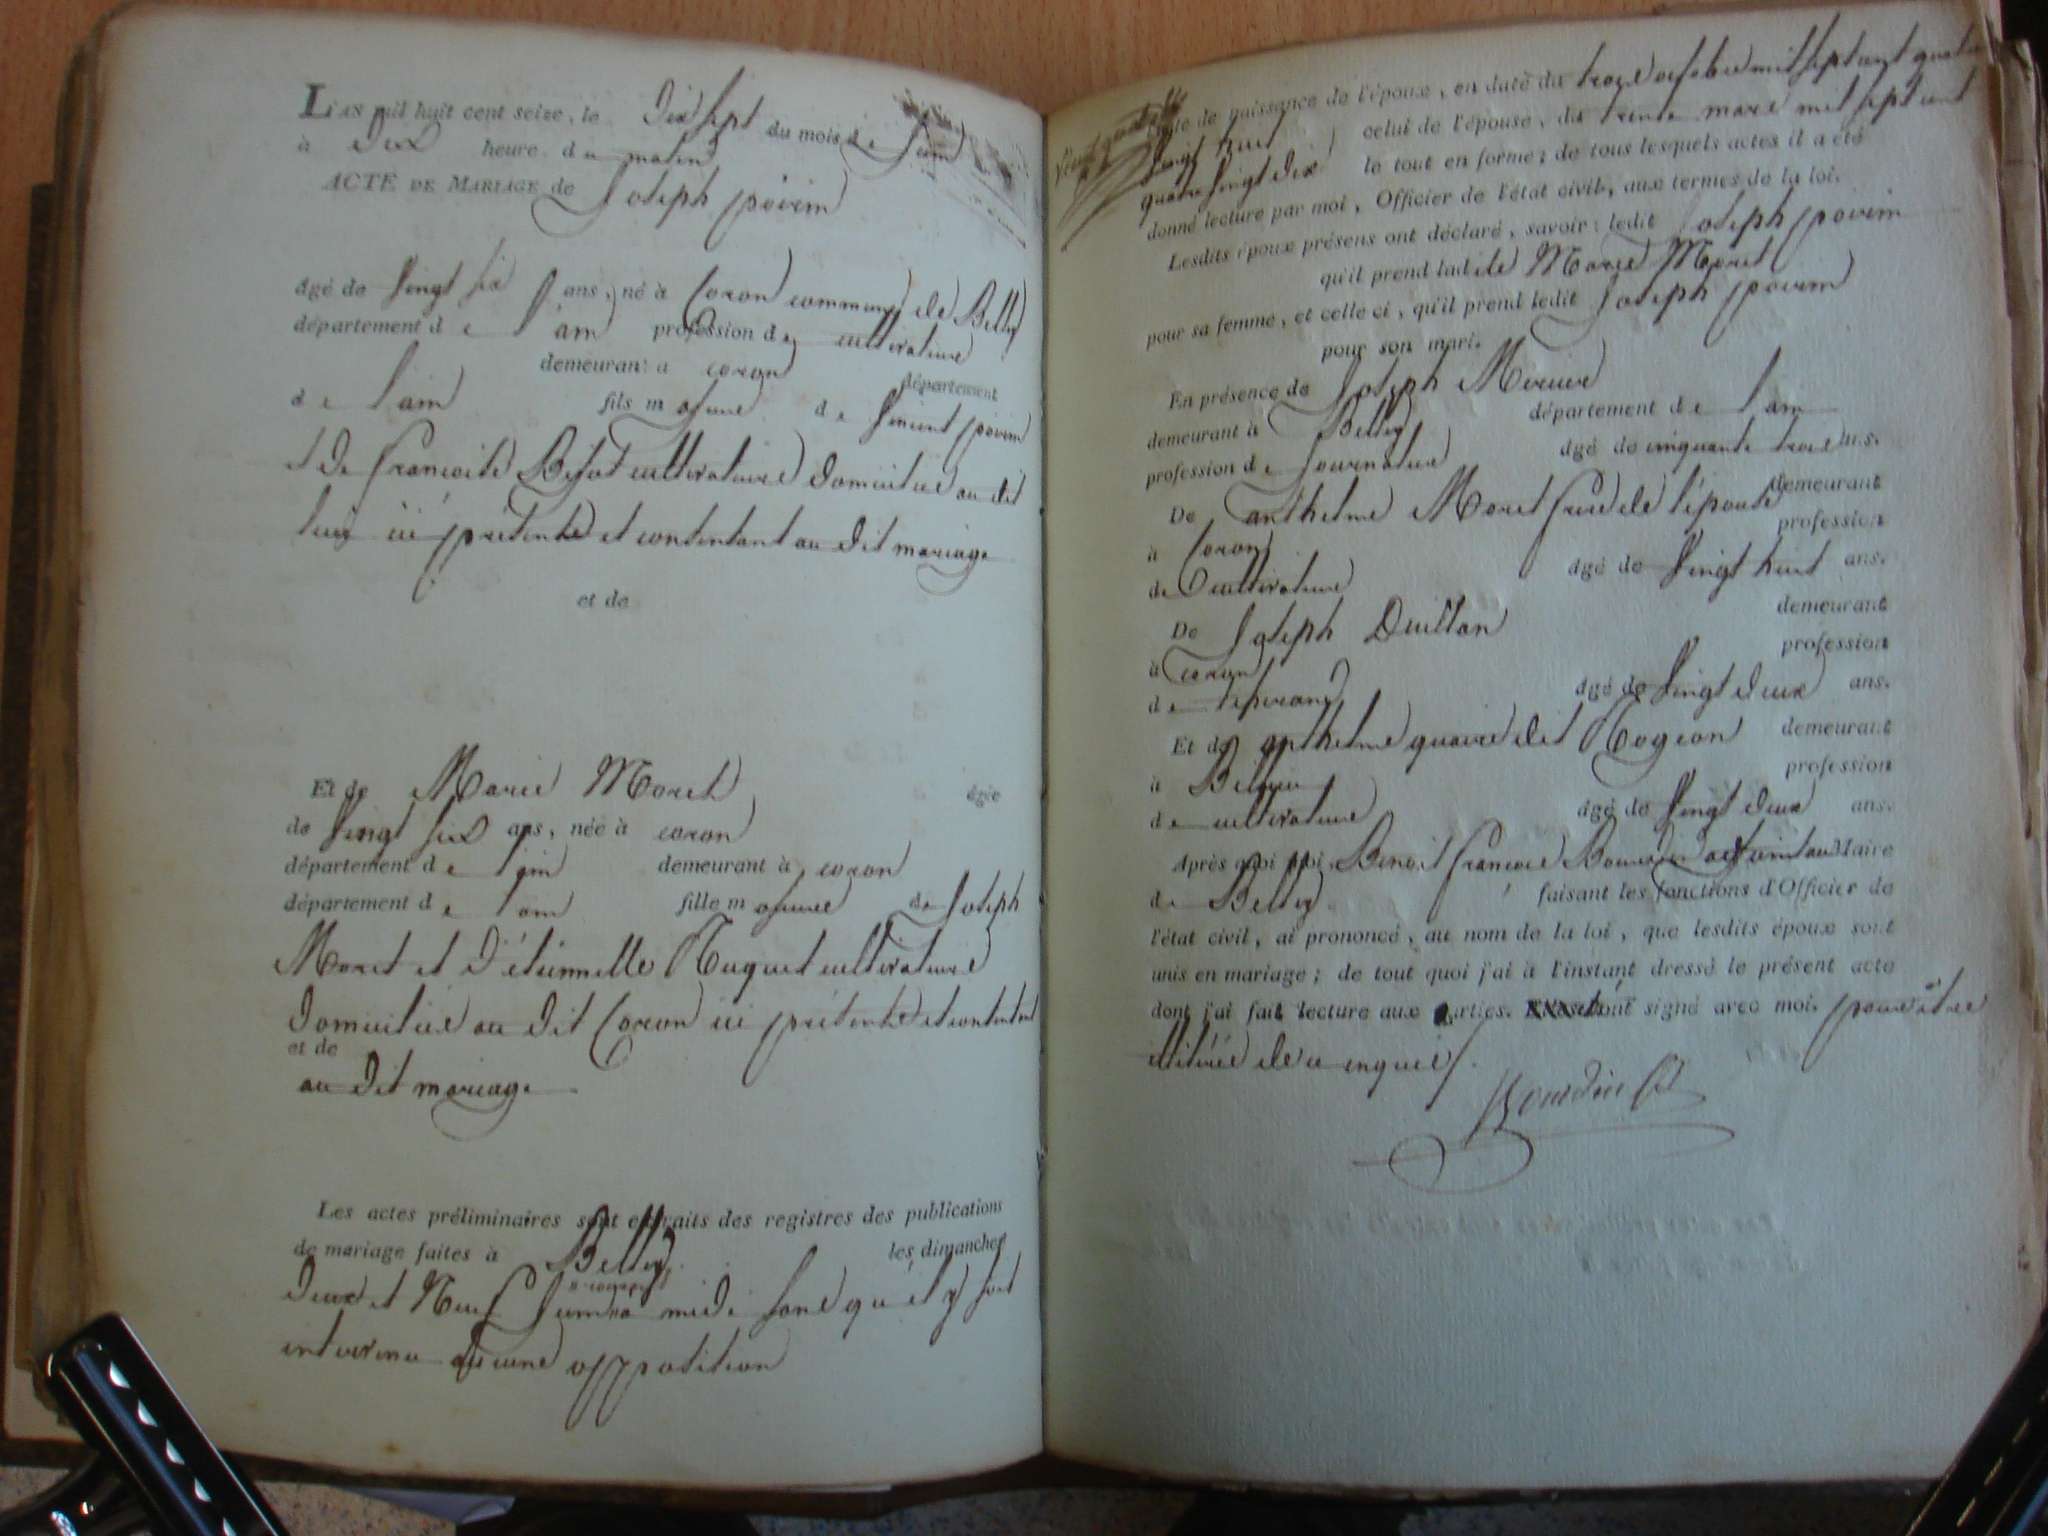 L'AN mil huit cent seize, le Dix sept du mois de Juin
à Dix heure du matin
ACTE DE MARIAGE de Joseph povim
âgé de vingt six ans, né à Coron commune de Belley
département de l'ain profession de cultivateur
demeurant à coron département
de l'ain fils majeur de povim
et de francoise cultivateurs domiciliés au dit
lieu ici présents et consentant au dit mariage
et de
Et de Marie Moret âgée
de vingt six ans, née à coron
département de l'ain demeurant à coron
département de l'ain fille majeure de Joseph
Moret et d'étiennette Huguet cultivateurs
domiciliés au dit Coron ici présents et consentent
et de
au dit mariage
Les actes préliminaires sont extraits des registres des publications
de mariage faites à Belley les dimanches
deux et Neuf Juin à midi sans qu'il y soit
intervenu aucune opposition
acte de naissance de l'époux, en date du treize octobre mil sept cent quatre
vingt neuf celui de l'épouse, du trente mars mil sept cent
quatre vingt dix le tout en forme; de tous lesquels actes il a été
donné lecture par moi, Officier de l'état civil, aux termes de la loi.
Lesdits époux présens ont déclaré, savoir: ledit Joseph povim
qu'il prend ladite Marie Moret
pour sa femme, et celle ci, qu'il prend ledit Joseph povim
pour son mari.
En présence de Joseph Mercier
demeurant à Belley département de l'ain
profession de Journalier âgé de cinquante trois ans.
De anthelme Moret frere de l'épouse demeurant
à Coron profession
de cultivateur âgé de vingt huit ans.
De Joseph demeurant
à coron profession
de tisserand âgé de vingt deux ans.
Et de anthelme dit demeurant
à Belley profession
de cultivateur âgé de vingt deux ans.
Après quoi moi Benoit francois Bourdin adjoint au Maire
de Belley faisant les fonctions d'Officier de
l'état civil, ai prononcé, au nom de la loi, que lesdits époux sont
unis en mariage; de tout quoi j'ai à l'instant dressé le présent acte
dont j'ai fait lecture aux parties. signé avec moi. pour être
illitérés de ce enquis.
Bourdin